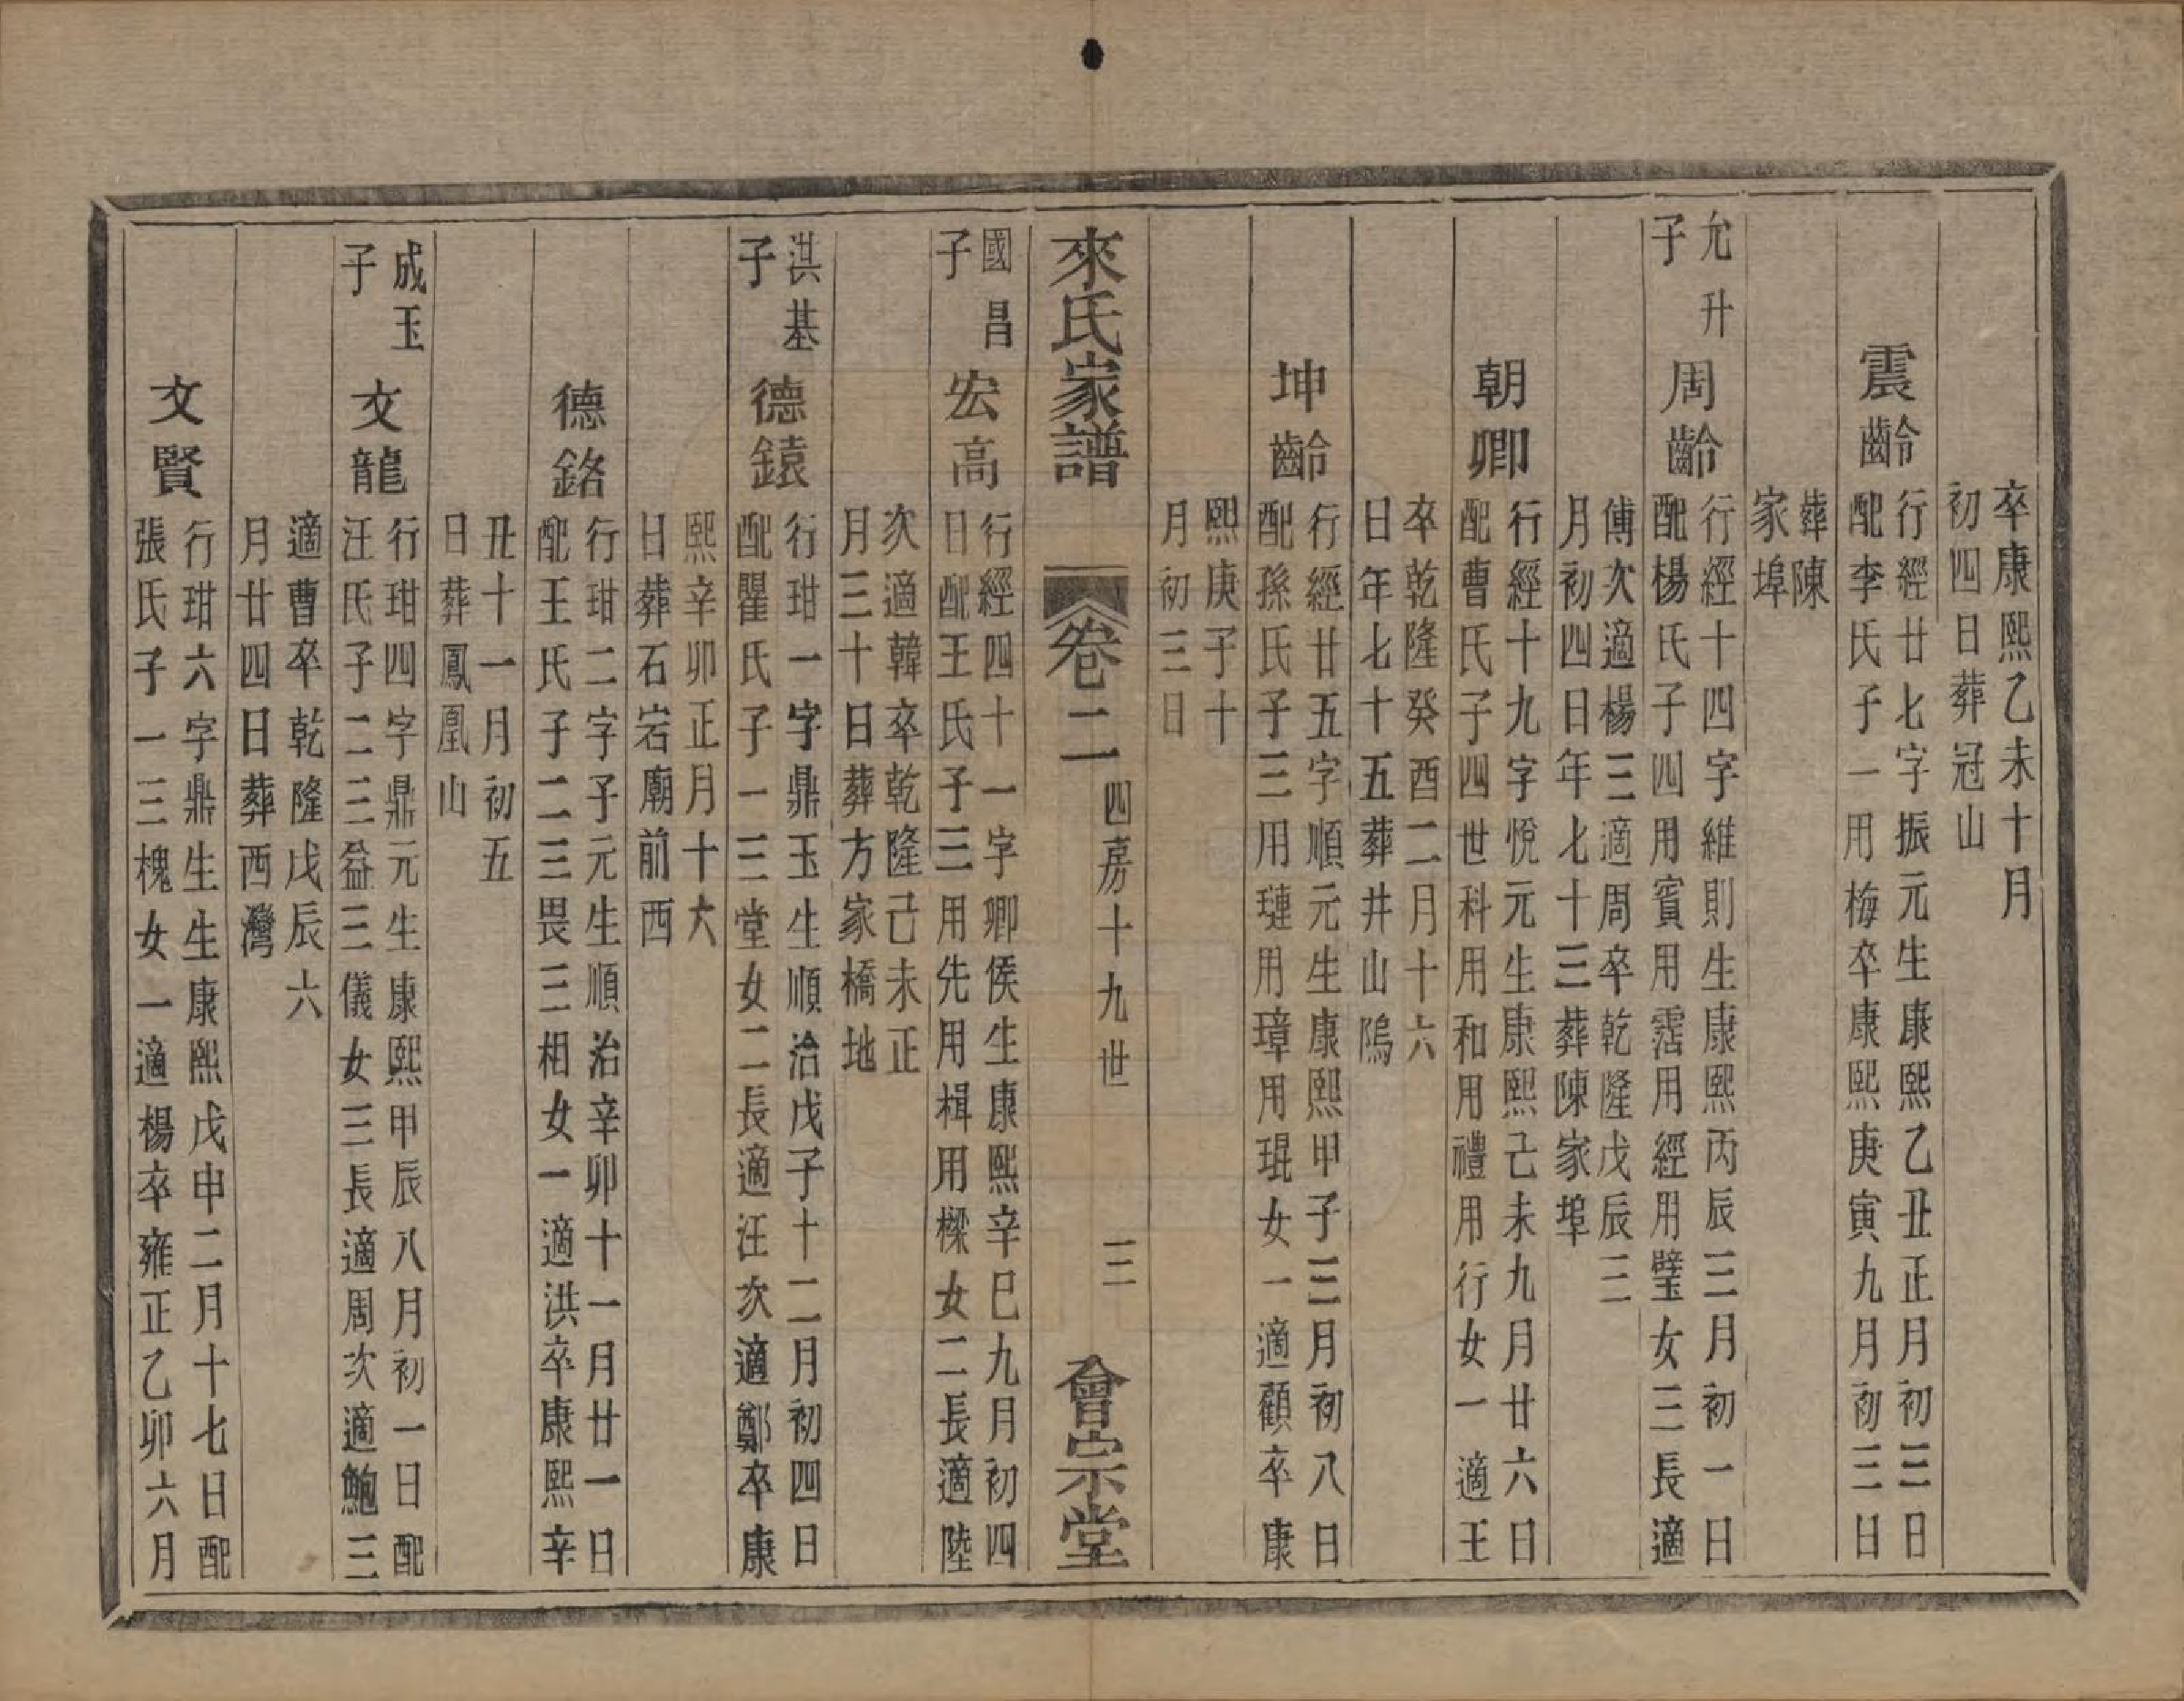 卒康熙乙未十月
初四日葬冠山
震齡
行經廿七字振元生康熙乙丑正月初三日
配李氏子一用梅卒康熙庚寅九月初三日
葬陳
家埠
允升
子
周齡
行經十四字維則生康熙丙辰三月初一日
配楊氏子四用賓用霑用經用璧女三長適
傅次適楊三適周卒乾隆戊辰三
月初四日年七十三葬陳家埠
朝卿
行經十九字悅元生康熙己未九月廿六日
配曹氏子四世科用和用禮用行女一適王
卒乾隆癸酉二月十六
日年七十五葬井山隖
坤齡
行經廿五字順元生康熙甲子三月初八日
配孫氏子三用璉用璋用琨女一適顧卒康
熙庚子十
月初三日
來氏家譜
卷二
四房十九世
三
會宗堂
國昌
子
宏高
行經四十一字卿侯生康熙辛巳九月初四
日配王氏子三用先用楫用樑女二長適陸
次適韓卒乾隆己未正
月三十日葬方家橋地
洪基
子
德鎱
行玵一字鼎玉生順治戊子十二月初四日
配瞿氏子一三堂女二長適汪次適鄭卒康
熙辛卯正月十六
日葬石岩廟前西
德銘
行玵二字子元生順治辛卯十一月廿一日
配王氏子二三畏三相女一適洪卒康熙辛
丑十一月初五
日葬鳳凰山
成玉
子
文龍
行玵四字鼎元生康熙甲辰八月初一日配
汪氏子二三益三儀女三長適周次適鮑三
適曹卒乾隆戊辰六
月廿四日葬西灣
文賢
行玵六字鼎生生康熙戊申二月十七日配
張氏子一三槐女一適楊卒雍正乙卯六月